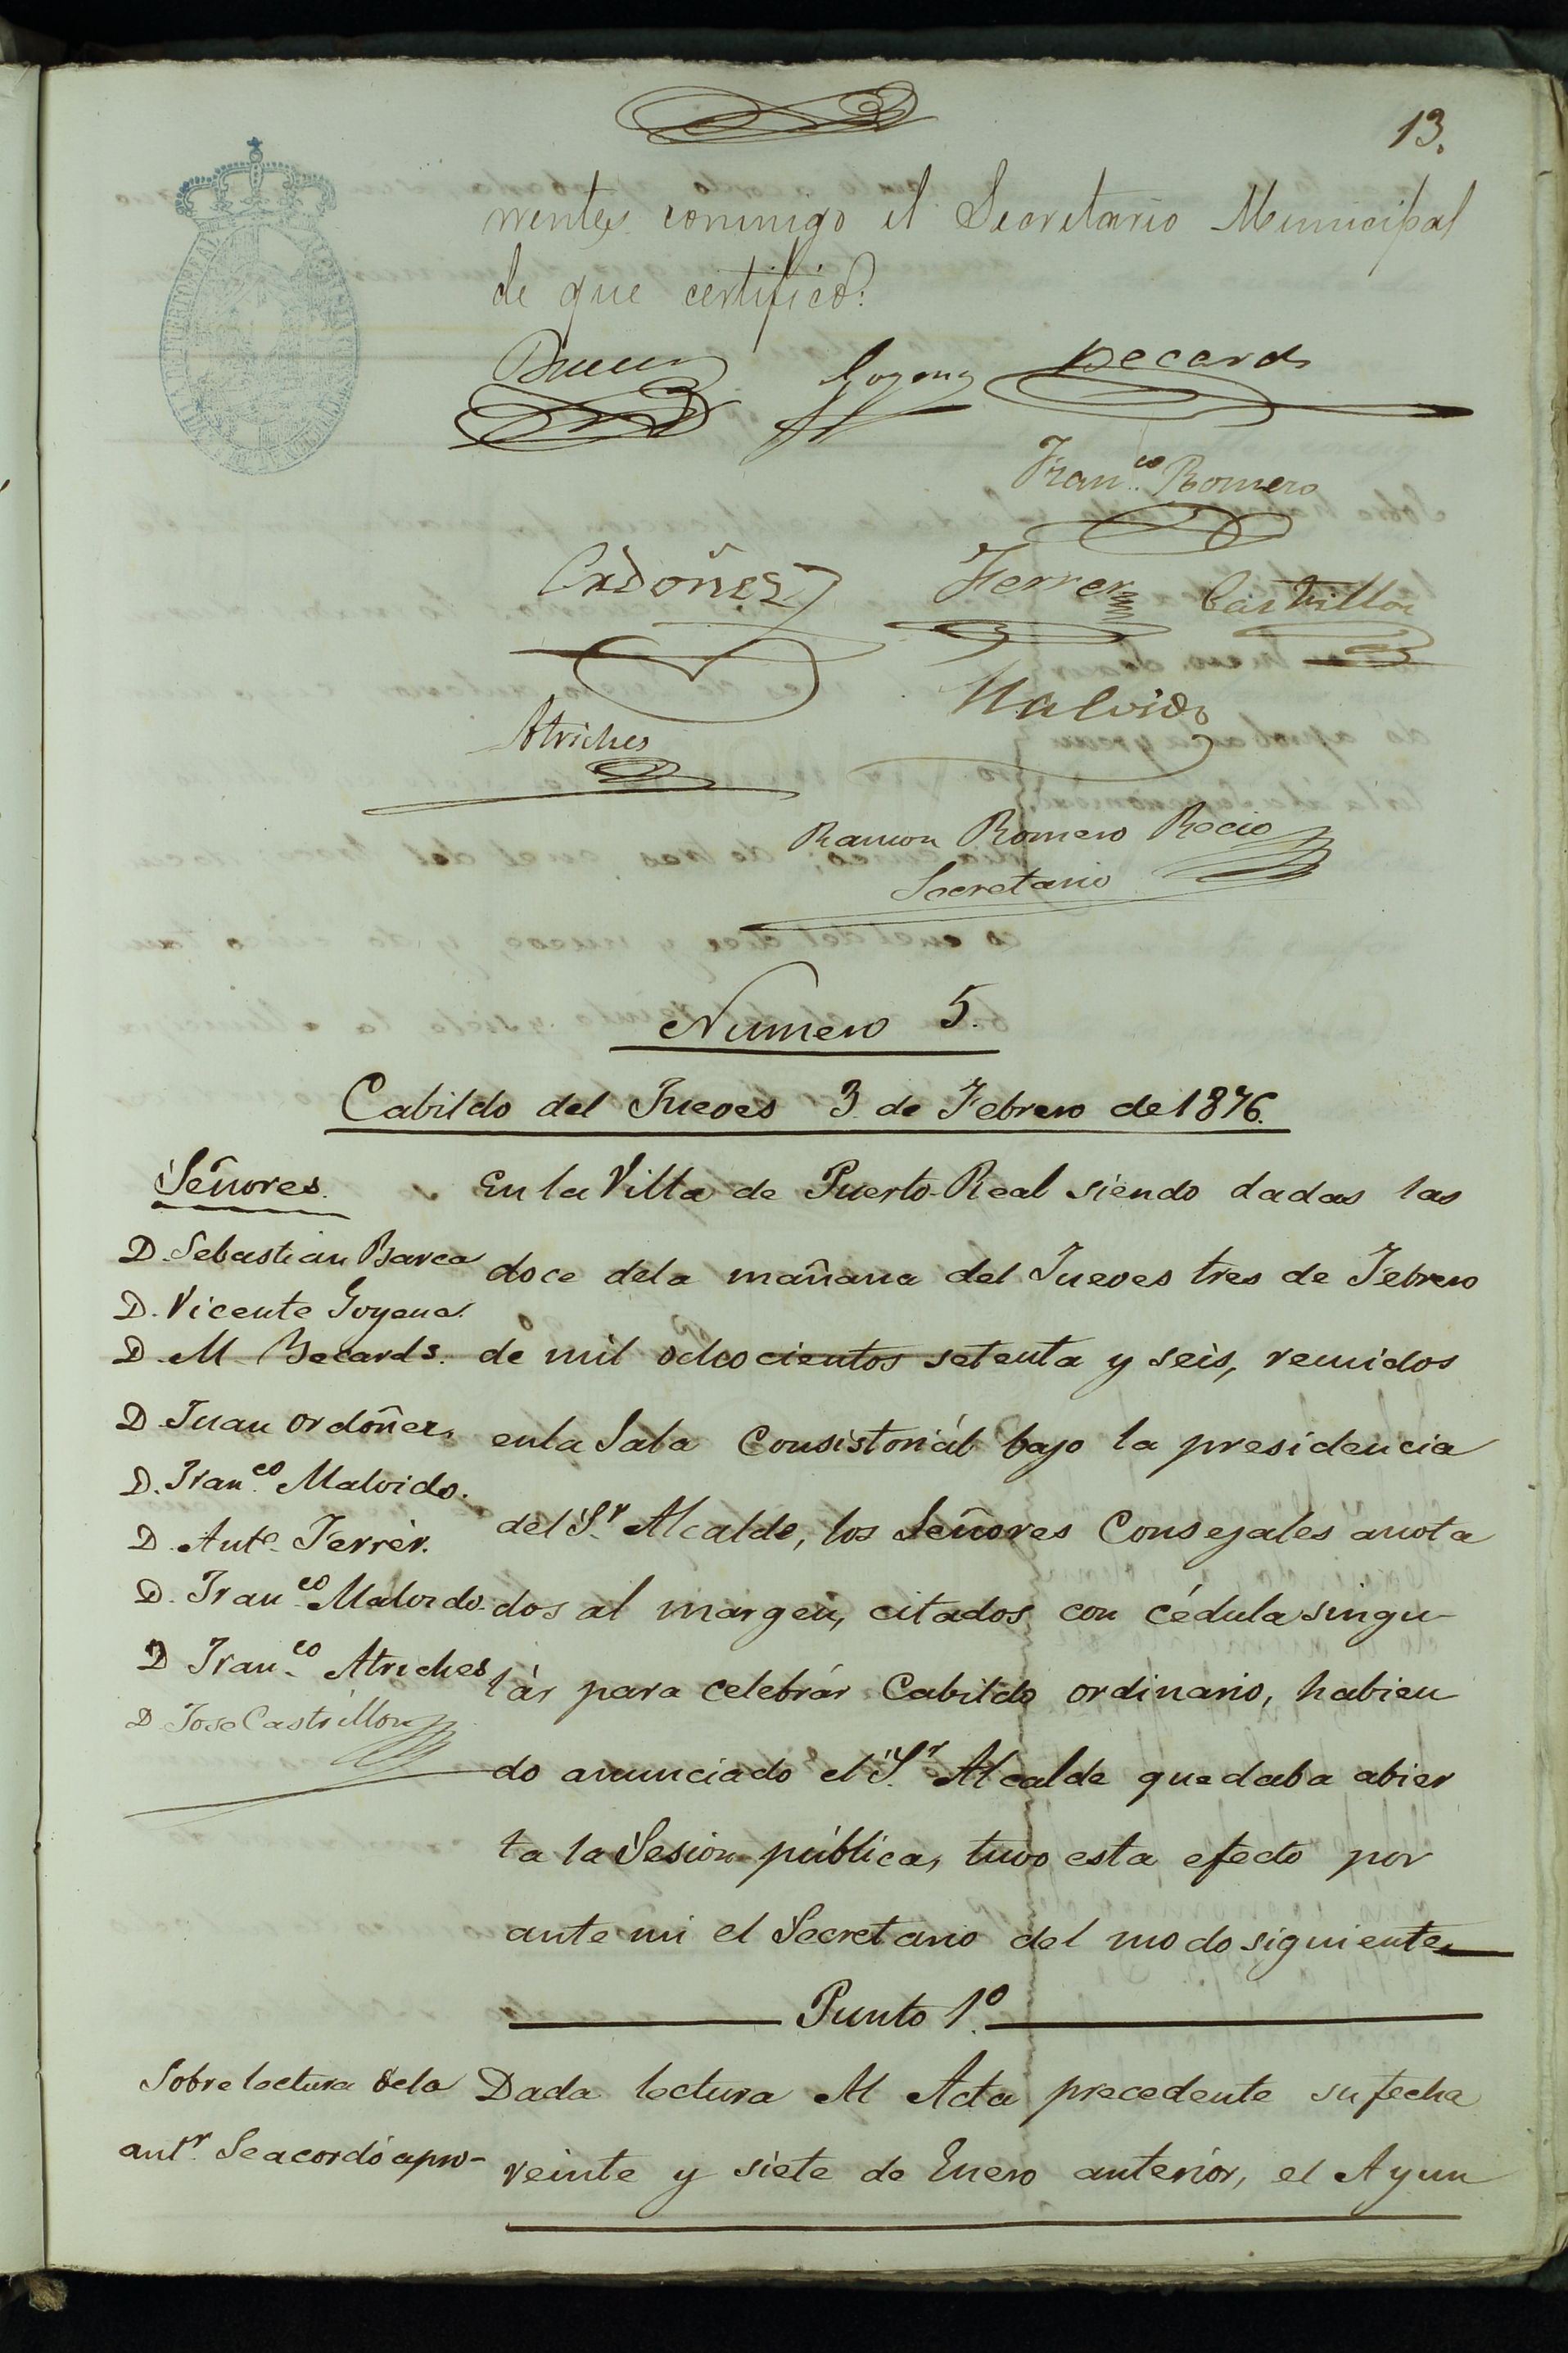 13.
rrentes conmigo el Secretario Municipal
de que certifico.
Goyena Becards
Fran.co Romero
Ordoñez Ferrer Castrillon
Malvido
Atriches
Ramon Romero Recio
Secretario
Numero 5.
Cabildo del Jueves 3 de Febrero de 1876.
Señores.
D. Sebastian Barca
D. Vicente Goyena.
D. M. Becards.
D. Juan Ordoñez.
D. Fran.co Malvido.
D. Ant.o Ferrér.
D. Fran.co Malvido.
D. Fran.co Atriches
D. Jose Castrillon
En la Villa de Puerto-Real siendo dadas las
doce dela mañana del Jueves tres de Febrero
de mil ochocientos setenta y seis, reunidos
enla Sala Consistoriál bajo la presidencia
del S.r Alcalde, los Señores Consejales anota
dos al margen, citados con cédula singu-
lár para celebrár Cabildo ordinario, habien
do anunciado el S.r Alcalde quedaba abier
ta la Sesion pública, tuvo esta efecto por
ante mi el Secretario del modo siguiente.
Punto 1.o
Sobre lectura dela
ant.r Se acordó apro-
Dada lectura Al Acta precedente su fecha
veinte y siete de Enero anteriór, el Ayun